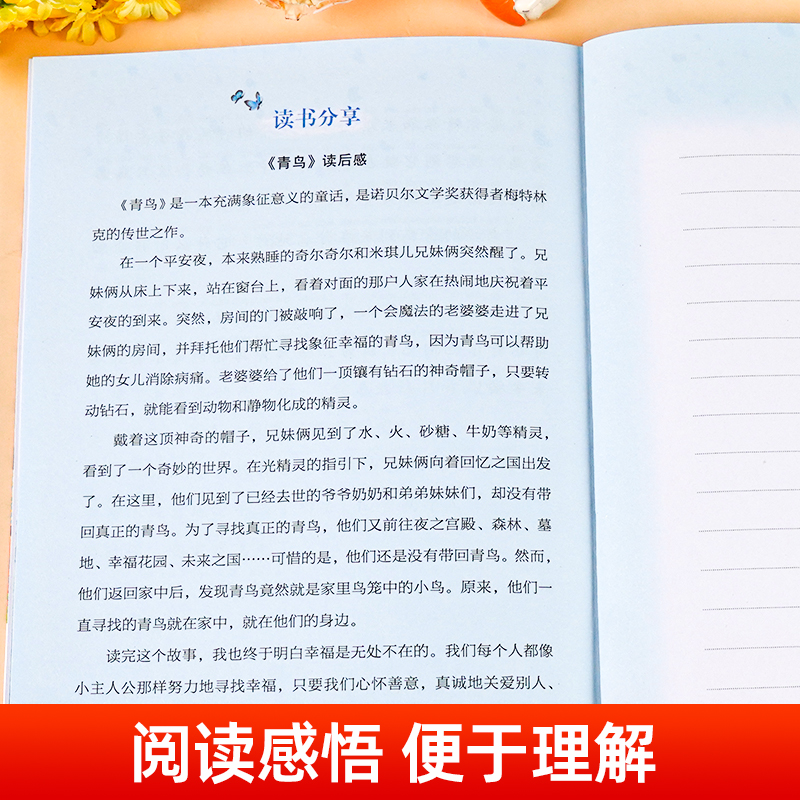 读书分享
《青鸟》读后感
《青鸟》是一本充满象征意义的童话，是诺贝尔文学奖获得者梅特林
克的传世之作。
在一个平安夜，本来熟睡的奇尔奇尔和米琪儿兄妹俩突然醒了。兄
妹俩从床上下来，站在窗台上，看着对面的那户人家在热闹地庆祝着平
安夜的到来。突然，房间的门被敲响了，一个会魔法的老婆婆走进了兄
妹俩的房间，并拜托他们帮忙寻找象征幸福的青鸟，因为青鸟可以帮助
她的女儿消除病痛。老婆婆给了他们一顶镶有钻石的神奇帽子，只要转
动钻石，就能看到动物和静物化成的精灵。
戴着这顶神奇的帽子，兄妹俩见到了水、火、砂糖、牛奶等精灵，
看到了一个奇妙的世界。在光精灵的指引下，兄妹俩向着回忆之国出发
了。在这里，他们见到了已经去世的爷爷奶奶和弟弟妹妹们，却没有带
回真正的青鸟。为了寻找真正的青鸟，他们又前往夜之宫殿、森林、墓
地、幸福花园、未来之国……可惜的是，他们还是没有带回青鸟。然而，
他们返回家中后，发现青鸟竟然就是家里鸟笼中的小鸟。原来，他们一
直寻找的青鸟就在家中，就在他们的身边。
读完这个故事，我也终于明白幸福是无处不在的。我们每个人都像
小主人公那样努力地寻找幸福，只要我们心怀善意，真诚地关爱别人、
阅读感悟 便于理解